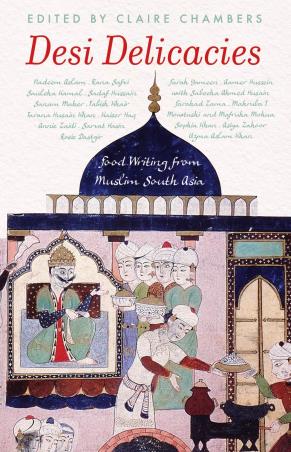 EDITED BY CLAIRE CHAMBERS
Desi Delicacies
Nadeem Aslam . Rana Safvi
Sauleha Kamal . Sadaf Hussain
Sanam Maher . Tabish Khair
Tarana Husain Khan . Kaiser Haq
Annie Zaidi . Sarvat Hasin
Rosie Dastgir
Sarah Yameen . Aamer Hussein
with Sabeeha Ahmed Husain
Farahad Zama . Mahruba T
Mowtushi and Mafruha Mohua
Sophia Khan . Asiya Zahoor
Uzma Aslam Khan
Food Writing from
Muslim South Asia